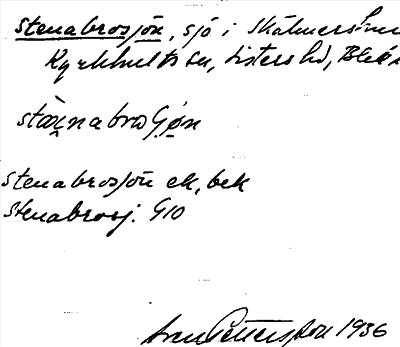 Stenabrosjön, sjö i Skälmershu
Kyrkhults sn, Listers hd, Blek
Stenabrosjön ek, bek
Stenabrosj. G10
Pettersson 1936